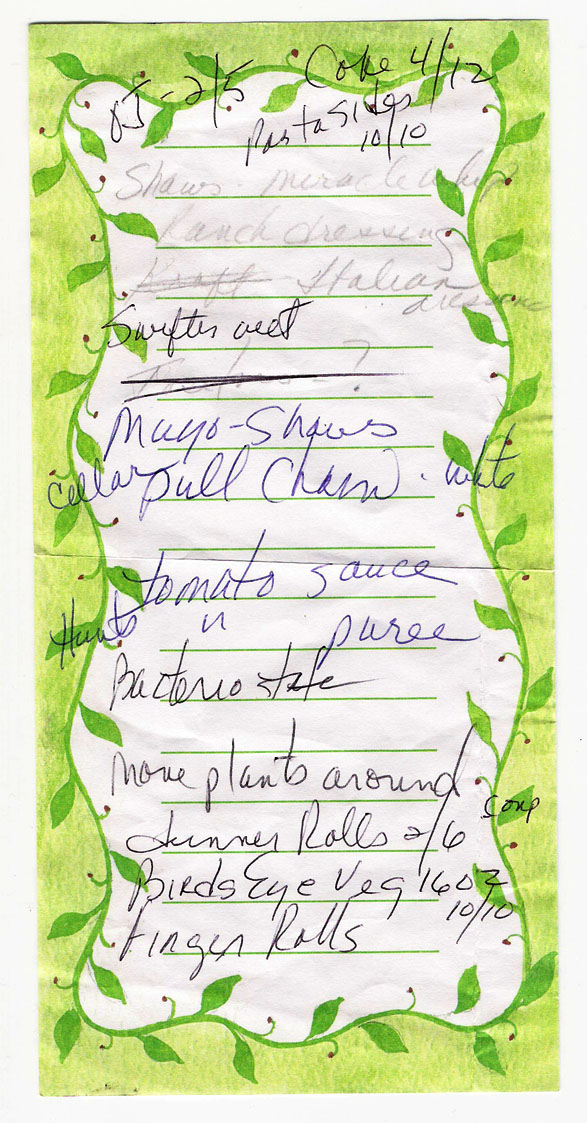 OJ - 2/5 Coke 4/12
Pasta Sides
10/10
Shaws - miracle whip
Ranch dressing
Kraft - Italian
dressing
Swifter wet
- ?
Mayo - Shaws
cellar pull chain - white
tomato sauce
Hunts " puree
Bacterio
move plants around
dinner Rolls 2/6
Birds Eye Veg 16 oz
10/10
Finger Rolls